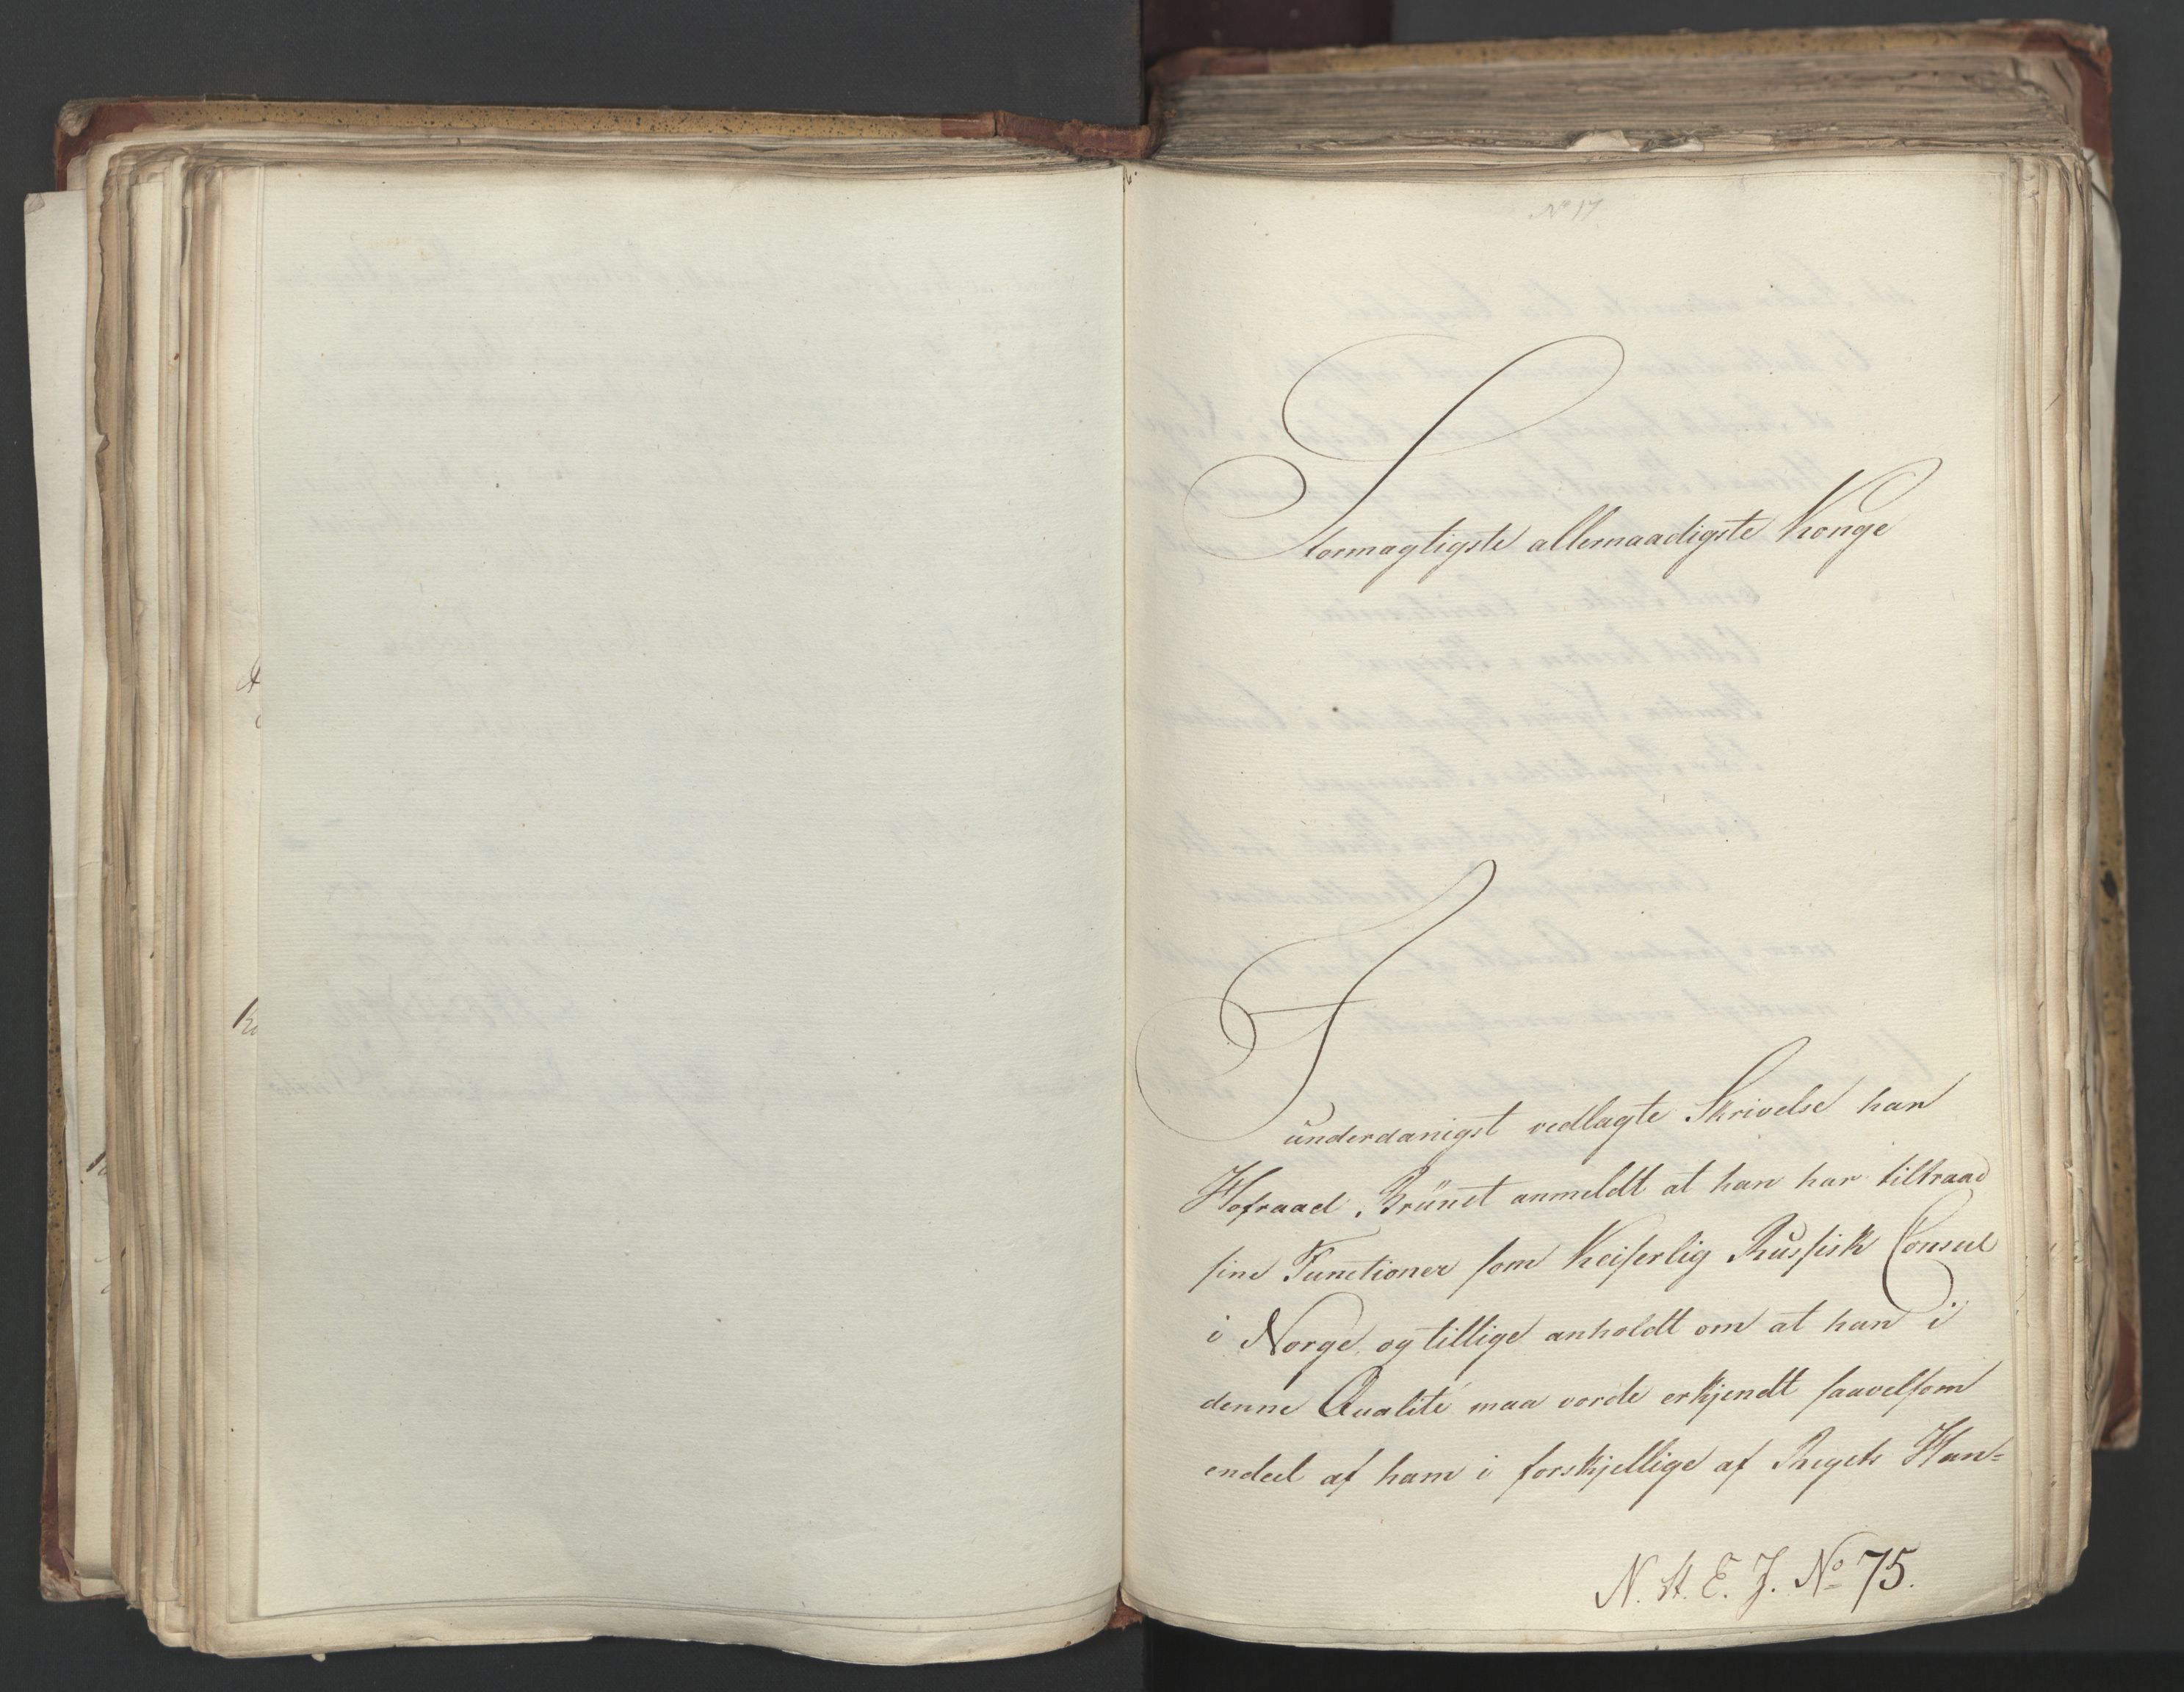 No 17
Stormægtigste allernaadigste Konge
I
underdanigst vedlagte Skrivelse har
Hofraad Brünet anmeldt at han har tiltraad
sine Functioner som Keiserlig Russisk Consul
i Norge, og tillige anholdt om at han i
denne Qualité maa vorde erkjendt saavelsom
endeel af ham i forskjellige af Rigets Han=
N. H. E. J. No 75.